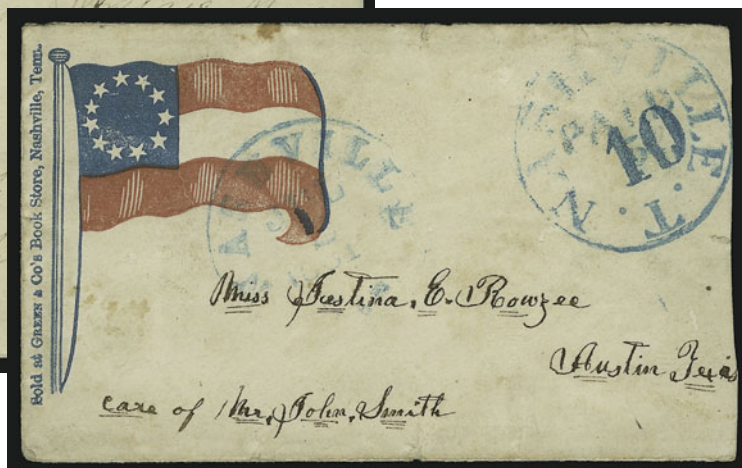 Sold at GREEN & Co's Book Store, Nashville, Tenn.
NASHVILLE. T.
PAID
10
NASHVILLE
Miss Justina. E. Rowzee
Austin Texas
care of Mr. John. Smith